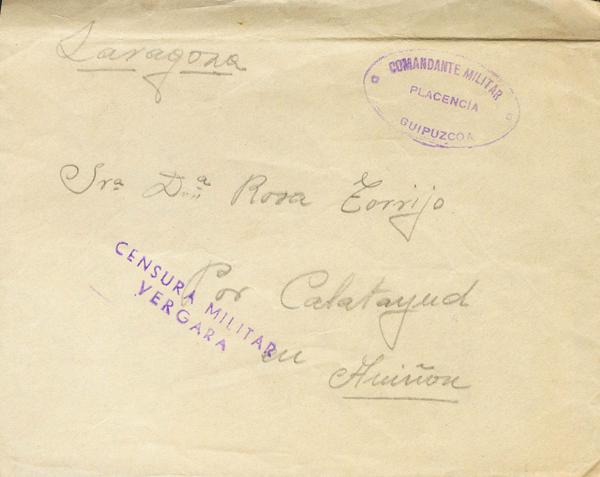 Zaragoza
COMANDANTE MILITAR
PLACENCIA
GUIPUZCOA
Sra Dª Rosa Torrijo
Por Calatayud
CENSURA MILITAR
VERGARA
en
Aniñon